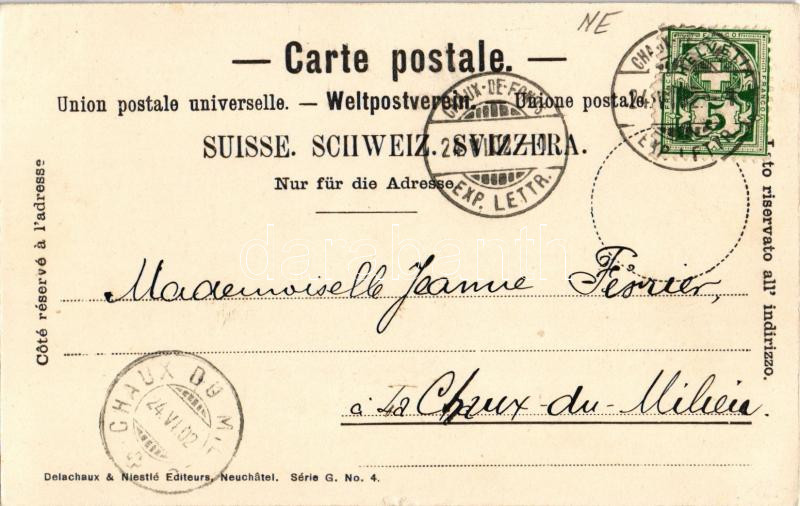 NE
— Carte postale. —
Union postale universelle. — Weltpostverein. — Unione postale
SUISSE. SCHWEIZ. SVIZZERA.
Nur für die Adresse
Côté réservé à l'adresse
riservato all' indirizzo.
HELVETIA
5
CHAUX-DE-FONDS
24.VI.02
EXP. LETTR.
EXP. LETTR.
darabanth
Mademoiselle Jeanne Février,
à La Chaux-du-Milieu.
CHAUX DU MIL
24.VI.02
Delachaux & Niestlé Editeurs, Neuchâtel. Série G. No. 4.